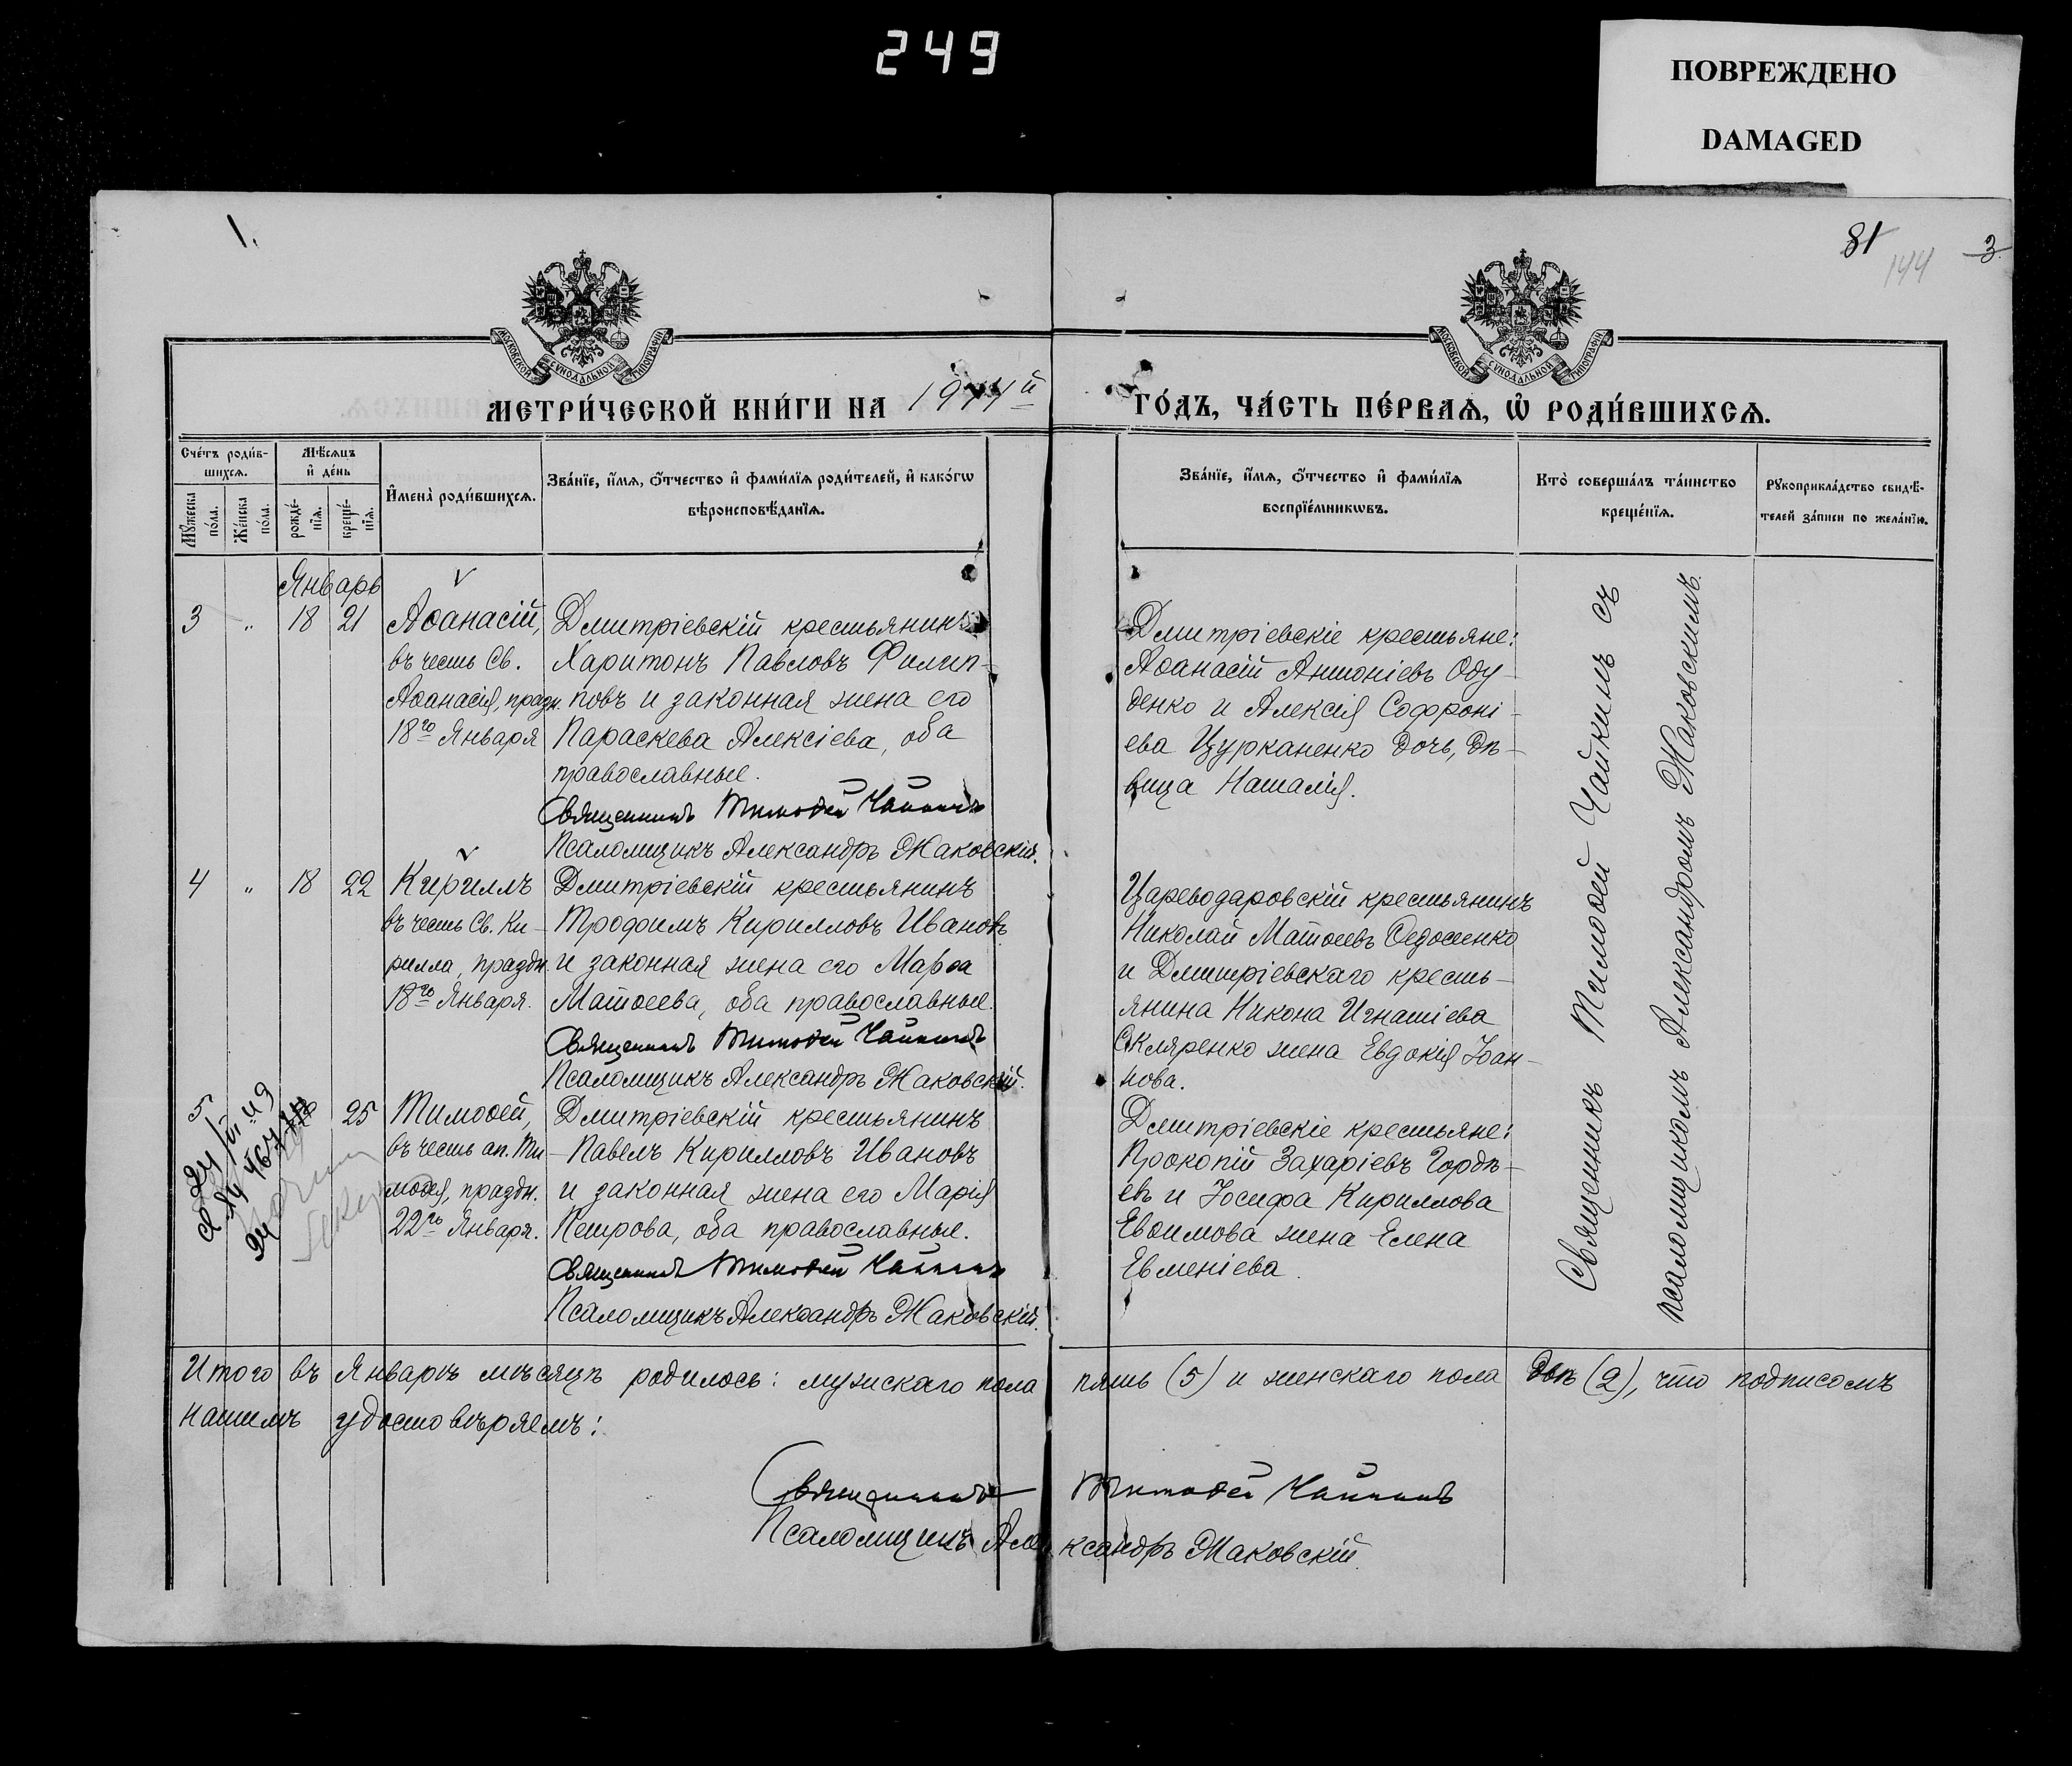 249
ПОВРЕЖДЕНО
DAMAGED
1.
81
144
3
МОСКОВСКОЙ СѴНОДАЛЬНОЙ ТИПОГРАФІИ
МОСКОВСКОЙ СѴНОДАЛЬНОЙ ТИПОГРАФІИ
МЕТРИ́ЧЕСКОЙ КНИ́ГИ НА
ГО́ДЪ, ЧА́СТЬ ПЕ́РВАѦ, Ѡ҆ РОДИ́ВШИХСѦ.
Сче́тъ роди́в-
шихсѧ.
Мѣ́сѧцъ
и҆ де́нь
Мꙋ́жеска
по́ла.
Же́нска
по́ла.
рожде́-
нїѧ.
креще́-
нїѧ.
И҆мена̀ роди́вшихсѧ.
Зва́нїе, и҆́мѧ, ѻ҆́тчество и҆ фами́лїѧ роди́телей, и҆ како́гѡ
вѣроисповѣ́данїѧ.
Зва́нїе, и҆́мѧ, ѻ҆́тчество и҆ фами́лїѧ
воспрїе́мникѡвъ.
Кто̀ соверша́лъ та́инство
креще́нїѧ.
Рꙋкоприкла́дство свидѣ́-
телей за́писи по жела́нїю.
Январь
3 „ 18 21
Аѳанасій,
въ честь Св.
Аѳанасія, праздн.
18го Января
Дмитріевскій крестьянинъ
Харитонъ Павловъ Филип-
повъ и законная жена его
Параскева Алексіева, оба
православные.
Священникъ Тимоѳей Чайкинъ
Псаломщикъ Александръ Жаковскій.
Дмитріевскіе крестьяне:
Аѳанасій Антоніевъ Оду-
денко и Алексія Софроні-
ева Цурканенко дочь, дѣ-
вица Наталія.
4 „ 18 22
Кириллъ
въ честь Св. Ки-
рилла, праздн.
18го Января.
Дмитріевскій крестьянинъ
Трофимъ Кирилловъ Ивановъ
и законная жена его Марѳа
Матѳеева, оба православные.
Священникъ Тимоѳей Чайкинъ
Псаломщикъ Александръ Жаковскій.
Цареводаровскій крестьянинъ
Николай Матѳеевъ Ѳедосенко
и Дмитріевскаго кресть-
янина Никона Игнатіева
Скляренко жена Евдокія Іоан-
нова.
5 25
Тимоѳей,
въ честь ап. Ти-
моѳея, праздн.
22го Января.
Дмитріевскій крестьянинъ
Павелъ Кирилловъ Ивановъ
и законная жена его Марія
Петрова, оба православные.
Священникъ Тимоѳей Чайкинъ
Псаломщикъ Александръ Жаковскій.
Дмитріевскіе крестьяне:
Прокопій Захаріевъ Гордѣ-
евъ и Іосифа Кириллова
Евѳимова жена Елена
Евменіева.
Священникъ Тимоѳей Чайкинъ съ
псаломщикомъ Александромъ Жаковскимъ.
Итого въ Январѣ мѣсяцѣ родилось: мужскаго пола пять (5) и женскаго пола двѣ (2), что подписомъ
нашимъ удостовѣряемъ:
Священникъ Тимоѳей Чайкинъ
Псаломщикъ Александръ Жаковскій.